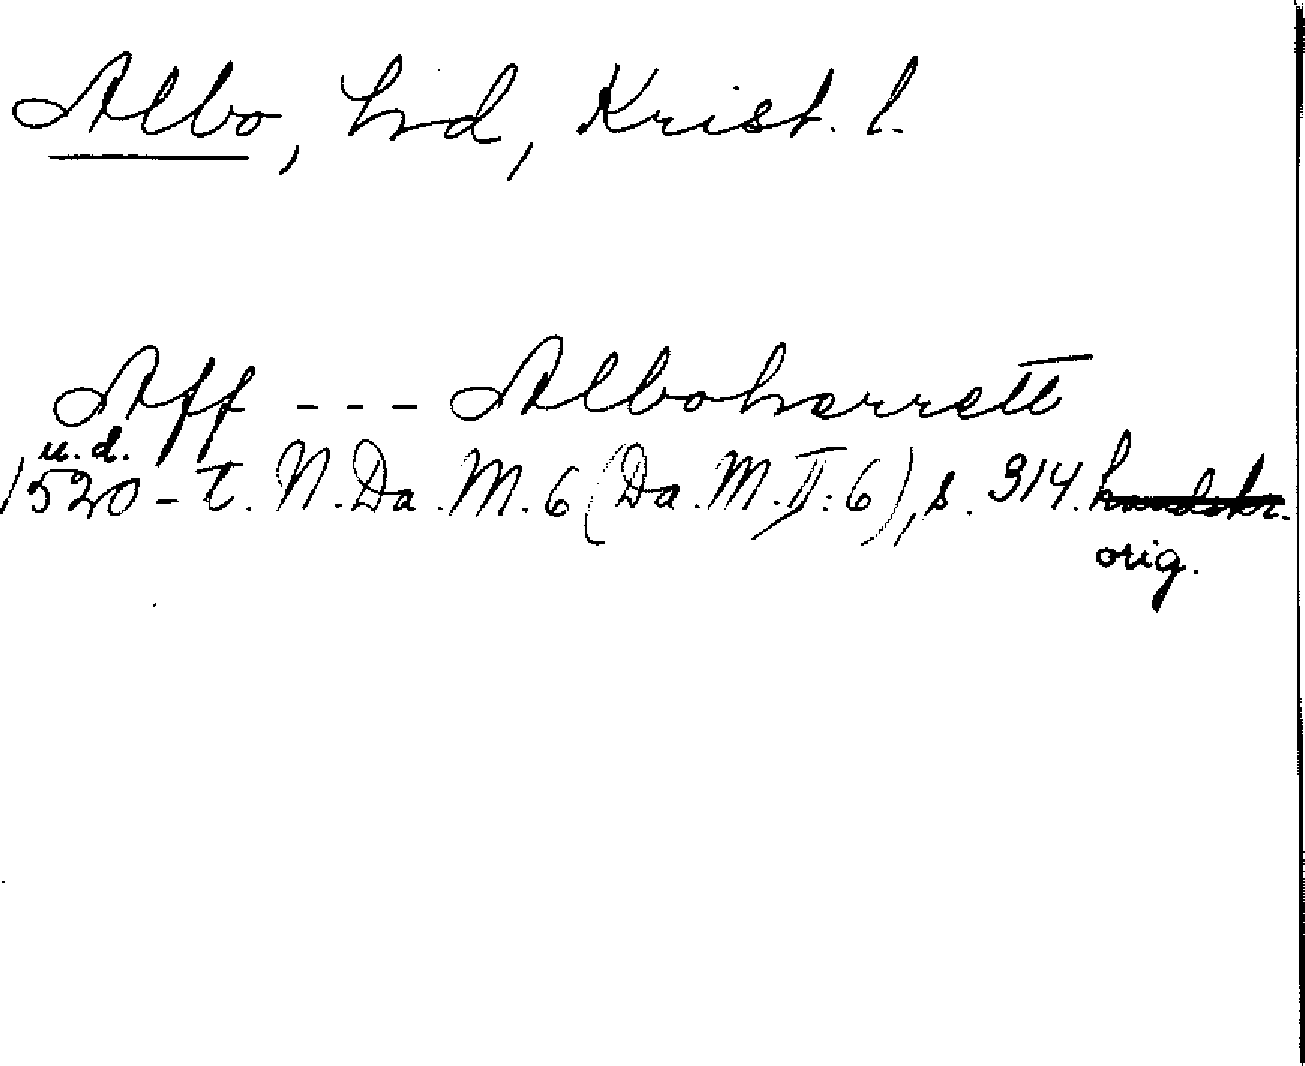 Albo, hd, Krist. l.
Aff --- Alboherrett
u. d.
1520-t. N. Da. M. 6 (Da. M. II: 6), s. 314. handskr.
orig.